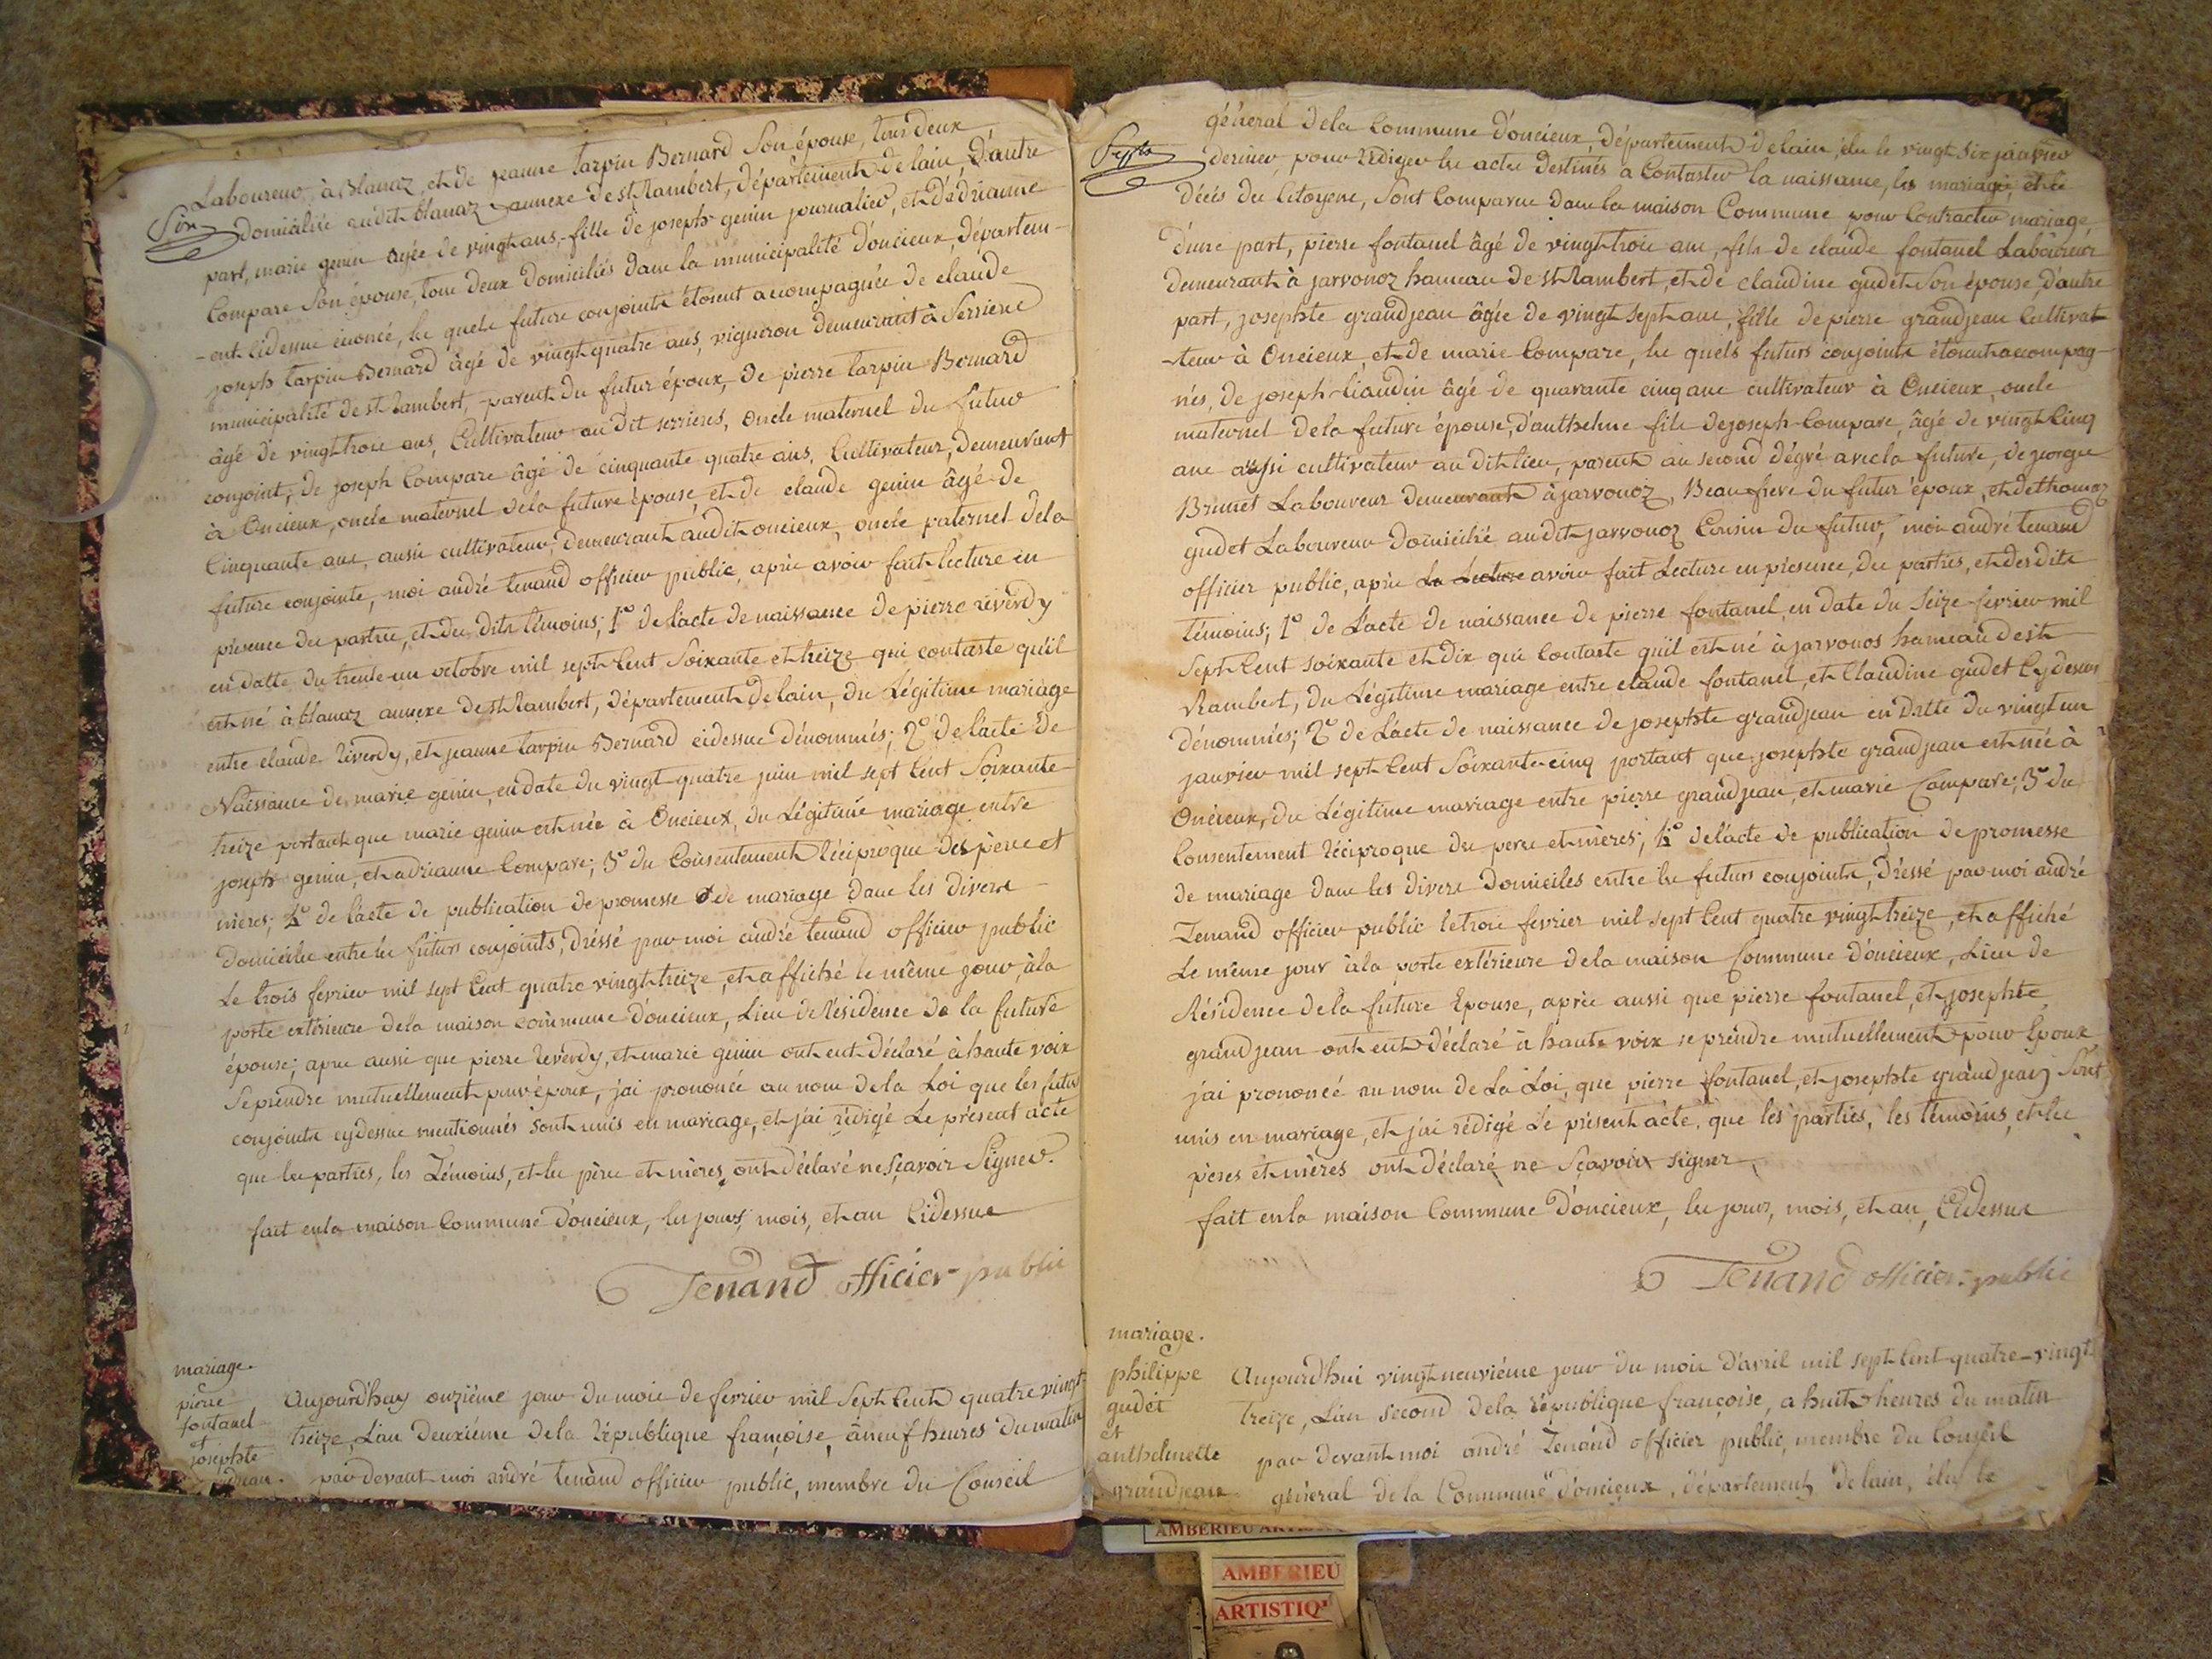 Six
Laboureur à blanaz, et de jeanne tarpin Bernard Son épouse, tous deux
domiciliés audit blanaz annexe de st Rambert, département de lain, d'autre
part, marie genin âgée de vingt ans, fille de joseph genin journalier, et d'adrianne
Compare Son épouse, tous deux domiciliés dans la municipalité d'oncieux, départem-
-ent cidessus énoncé, les quels futurs conjoints étoient accompagnés de claude
joseph tarpin Bernard âgé de vingt quatre ans, vigneron demeurant à Serrieres
municipalité de st Rambert, parent du futur époux, de pierre tarpin Bernard
âgé de vingt trois ans, Cultivateur au dit serrieres, oncle maternel du futur
conjoint, de joseph Compare âgé de cinquante quatre ans, Cultivateur, demeurant
à Oncieux, oncle maternel dela future épouse, et de claude genin âgé de
Cinquante ans, aussi cultivateur, demeurant audit oncieux, oncle paternel dela
future conjointe, moi andré tenand officier public, après avoir fait lecture en
présence des parties, et des dits témoins; 1° de l'acte de naissance de pierre reverdy
en datte du trente un octobre mil sept Cent Soixante et treize qui contaste qu'il
est né à blanaz annexe de st Rambert, département de lain, du Légitime mariage
entre claude reverdy, et jeanne tarpin Bernard cidessus dénommés; 2° de l'acte de
Naissance de marie genin, en date du vingt quatre juin mil sept Cent Soixante
treize portant que marie genin est née à Oncieux, du Légitime mariage entre
joseph genin, et adrianne Compare; 3° du Consentement réciproque des pères et
mères; 4° de l'acte de publication de promesse de mariage dans les divers
domiciles entre les futurs conjoints, dréssé par moi andré tenand officier public
Le trois fevrier mil sept Cent quatre vingt treize, et affiché le même jour, à la
porte extérieure dela maison commune d'oncieux, Lieu de Résidence de la future
épouse; apres aussi que pierre reverdy, et marie genin ont eut déclaré à haute voix
Se prendre mutuellement pour époux, j'ai prononcé au nom dela Loi que les futurs
conjoints cydessus mentionnés sont unis en mariage, et j'ai rédigé Le présent acte
que les parties, les Témoins, et les pères et mères, ont déclaré ne Sçavoir Signer.
fait en la maison Commune d'oncieux, les jours, mois, et an Cidessus
Tenand officier public
mariage.
pierre
fontanel
et
josephte
Aujourd'huy onzième jour du mois de fevrier mil Sept Cent quatre vingt
treize, L'an deuxième dela république françoise, à neuf heures du matin
par devant moi andré tenand officier public, membre du Conseil
Sept
général dela Commune d'oncieux, département de lain, élu le vingt six janvier
dernier, pour rédiger les actes destinés a Contaster la naissance, les mariages, et le
décès des Citoyens, Sont Comparus dans la maison Commune pour Contracter mariage,
d'une part, pierre fontanel âgé de vingt trois ans, fils de claude fontanel Laboureur
demeurant à jarvonoz hameau de st Rambert, et de claudine gudet Son épouse, d'autre
part, josephte grandjean âgée de vingt sept ans, fille de pierre grandjean Cultivat-
-teur à Oncieux, et de marie Compare, les quels futurs conjoints étoient accompag-
nés, de joseph liaudin âgé de quarante cinq ans cultivateur à Oncieux, oncle
maternel dela future épouse, d'anthelme fils de joseph Compare, âgé de vingt Cinq
ans aussi cultivateur au dit lieu, parents au second dégré avec la future, de george
Brunet Laboureur demeurant à jarvonoz, Beaufrere du futur époux, et de thomaz
gudet Laboureur domicilié audit jarvonoz Cousin du futur, moi andré tenand
officier public, après La Lecture avoir fait Lecture en présence, des parties, et des dits
témoins; 1° de L'acte de naissance de pierre fontanel, en date du Seize fevrier mil
Sept Cent soixante et dix qui Contaste qu'il est né à jarvonos hameau de st
Rambert, du Légitime mariage entre claude fontanel, et Claudine gudet Cydessus
dénommés; 2° de L'acte de naissance de josephte grandjean en datte du vingt un
janvier mil sept Cent Soixante cinq portant que josephte grandjean est née à
Oncieux, du Légitime mariage entre pierre grandjean, et marie Compare; 3° du
Consentement réciproque des peres et mères; 4° de l'acte de publication de promesse
de mariage dans les divers domiciles entre les futurs conjoints, dréssé par moi andré
Tenand officier public le trois fevrier mil sept Cent quatre vingt treize, et affiché
Le même jour à la porte extérieure dela maison Commune d'oncieux, Lieu de
Résidence dela future Epouse, après aussi que pierre fontanel, et josephte
grandjean ont eut déclaré à haute voix se prendre mutuellement pour Epoux
j'ai prononcé au nom de La Loi, que pierre fontanel, et josephte grandjean Sont
unis en mariage, et j'ai rédigé Le présent acte. que les parties, les témoins, et les
pères et mères ont déclaré ne Sçavoir signer
fait en la maison Commune d'oncieux, les jours, mois, et an, Cidessus
Tenand officier public
mariage.
philippe
gudet
et
anthelmette
grandjean
Aujourd'hui vingt neuvième jour du mois d'avril mil sept Cent quatre-vingt
treize, L'an Second dela république françoise, a huit heures du matin
par devant moi andré Tenand officier public, membre du Conseil
général de la Commune d'oncieux, département de lain, élu le
AMBERIEU
AMBERIEU
ARTISTIQ